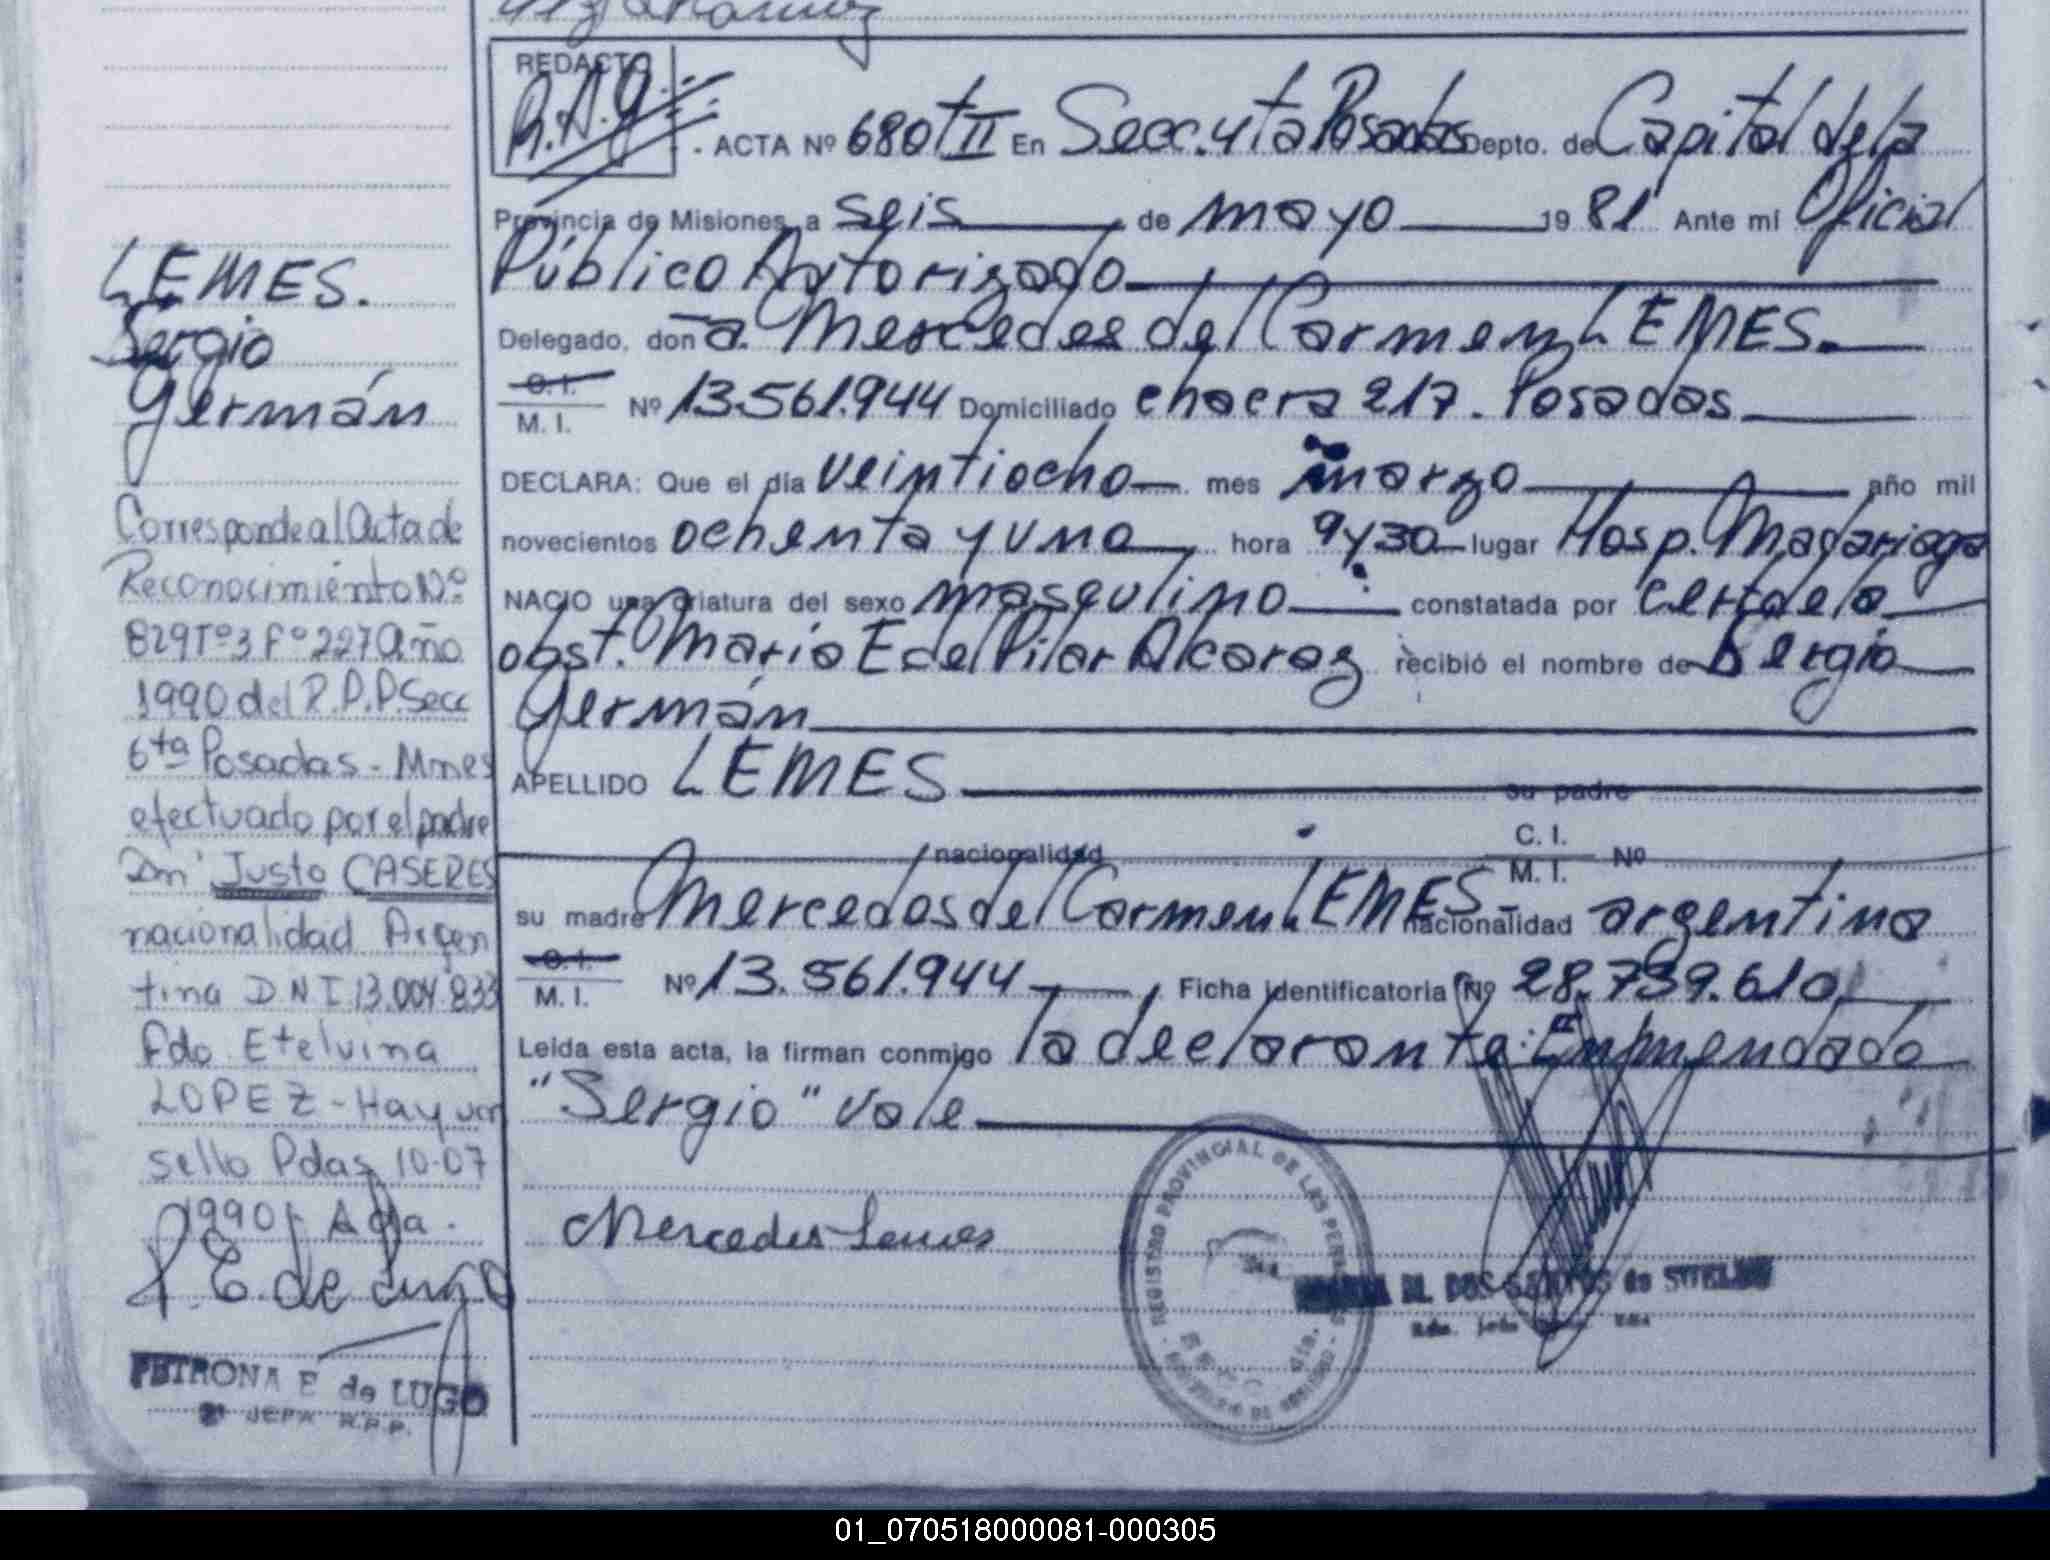 REDACTO
R.A.G.
ACTA Nº 680 t II En Secc. 4ta Posadas Depto. de Capital de la
Provincia de Misiones, a seis de mayo 1981 Ante mí Oficial
Público Autorizado
Delegado, doña. Mercedes del Carmen LEMES.
C. I.
M. I. Nº 13.561.944 Domiciliado chacra 217. Posadas
DECLARA: Que el día veintiocho mes marzo año mil
novecientos ochenta y uno hora 9 y 30 lugar Hosp. Madariaga
NACIO una criatura del sexo masculino constatada por cert de la
obst. María E del Pilar Alcaraz recibió el nombre de Sergio
Germán
APELLIDO LEMES su padre
nacionalidad C. I. M. I. Nº
su madre Mercedes del Carmen LEMES- nacionalidad argentina
C. I.
M. I. Nº 13.561.944 Ficha identificatoria Nº 28.739.610
Leída esta acta, la firman conmigo la declarante: Enmendado
"Sergio" vale
Mercedes Lemes
REGISTRO PROVINCIAL DE LAS PERSONAS
DOS SANTOS de
LEMES.
Sergio
Germán
Corresponde al Acta de
Reconocimiento Nº
829 Tº3 Fº 227 Año
1990 del R.P.P. Secc
6ta Posadas - Mnes
efectuado por el padre
Dn' Justo CASERES
nacionalidad Argen
tina DNI 13.004.833
Fdo. Etelvina
LOPEZ - Hay un
sello Pdas, 10-07
1990
P. E. de Lugo
PETRONA E de LUGO
2º JEFA R.P.P.
01_070518000081-000305